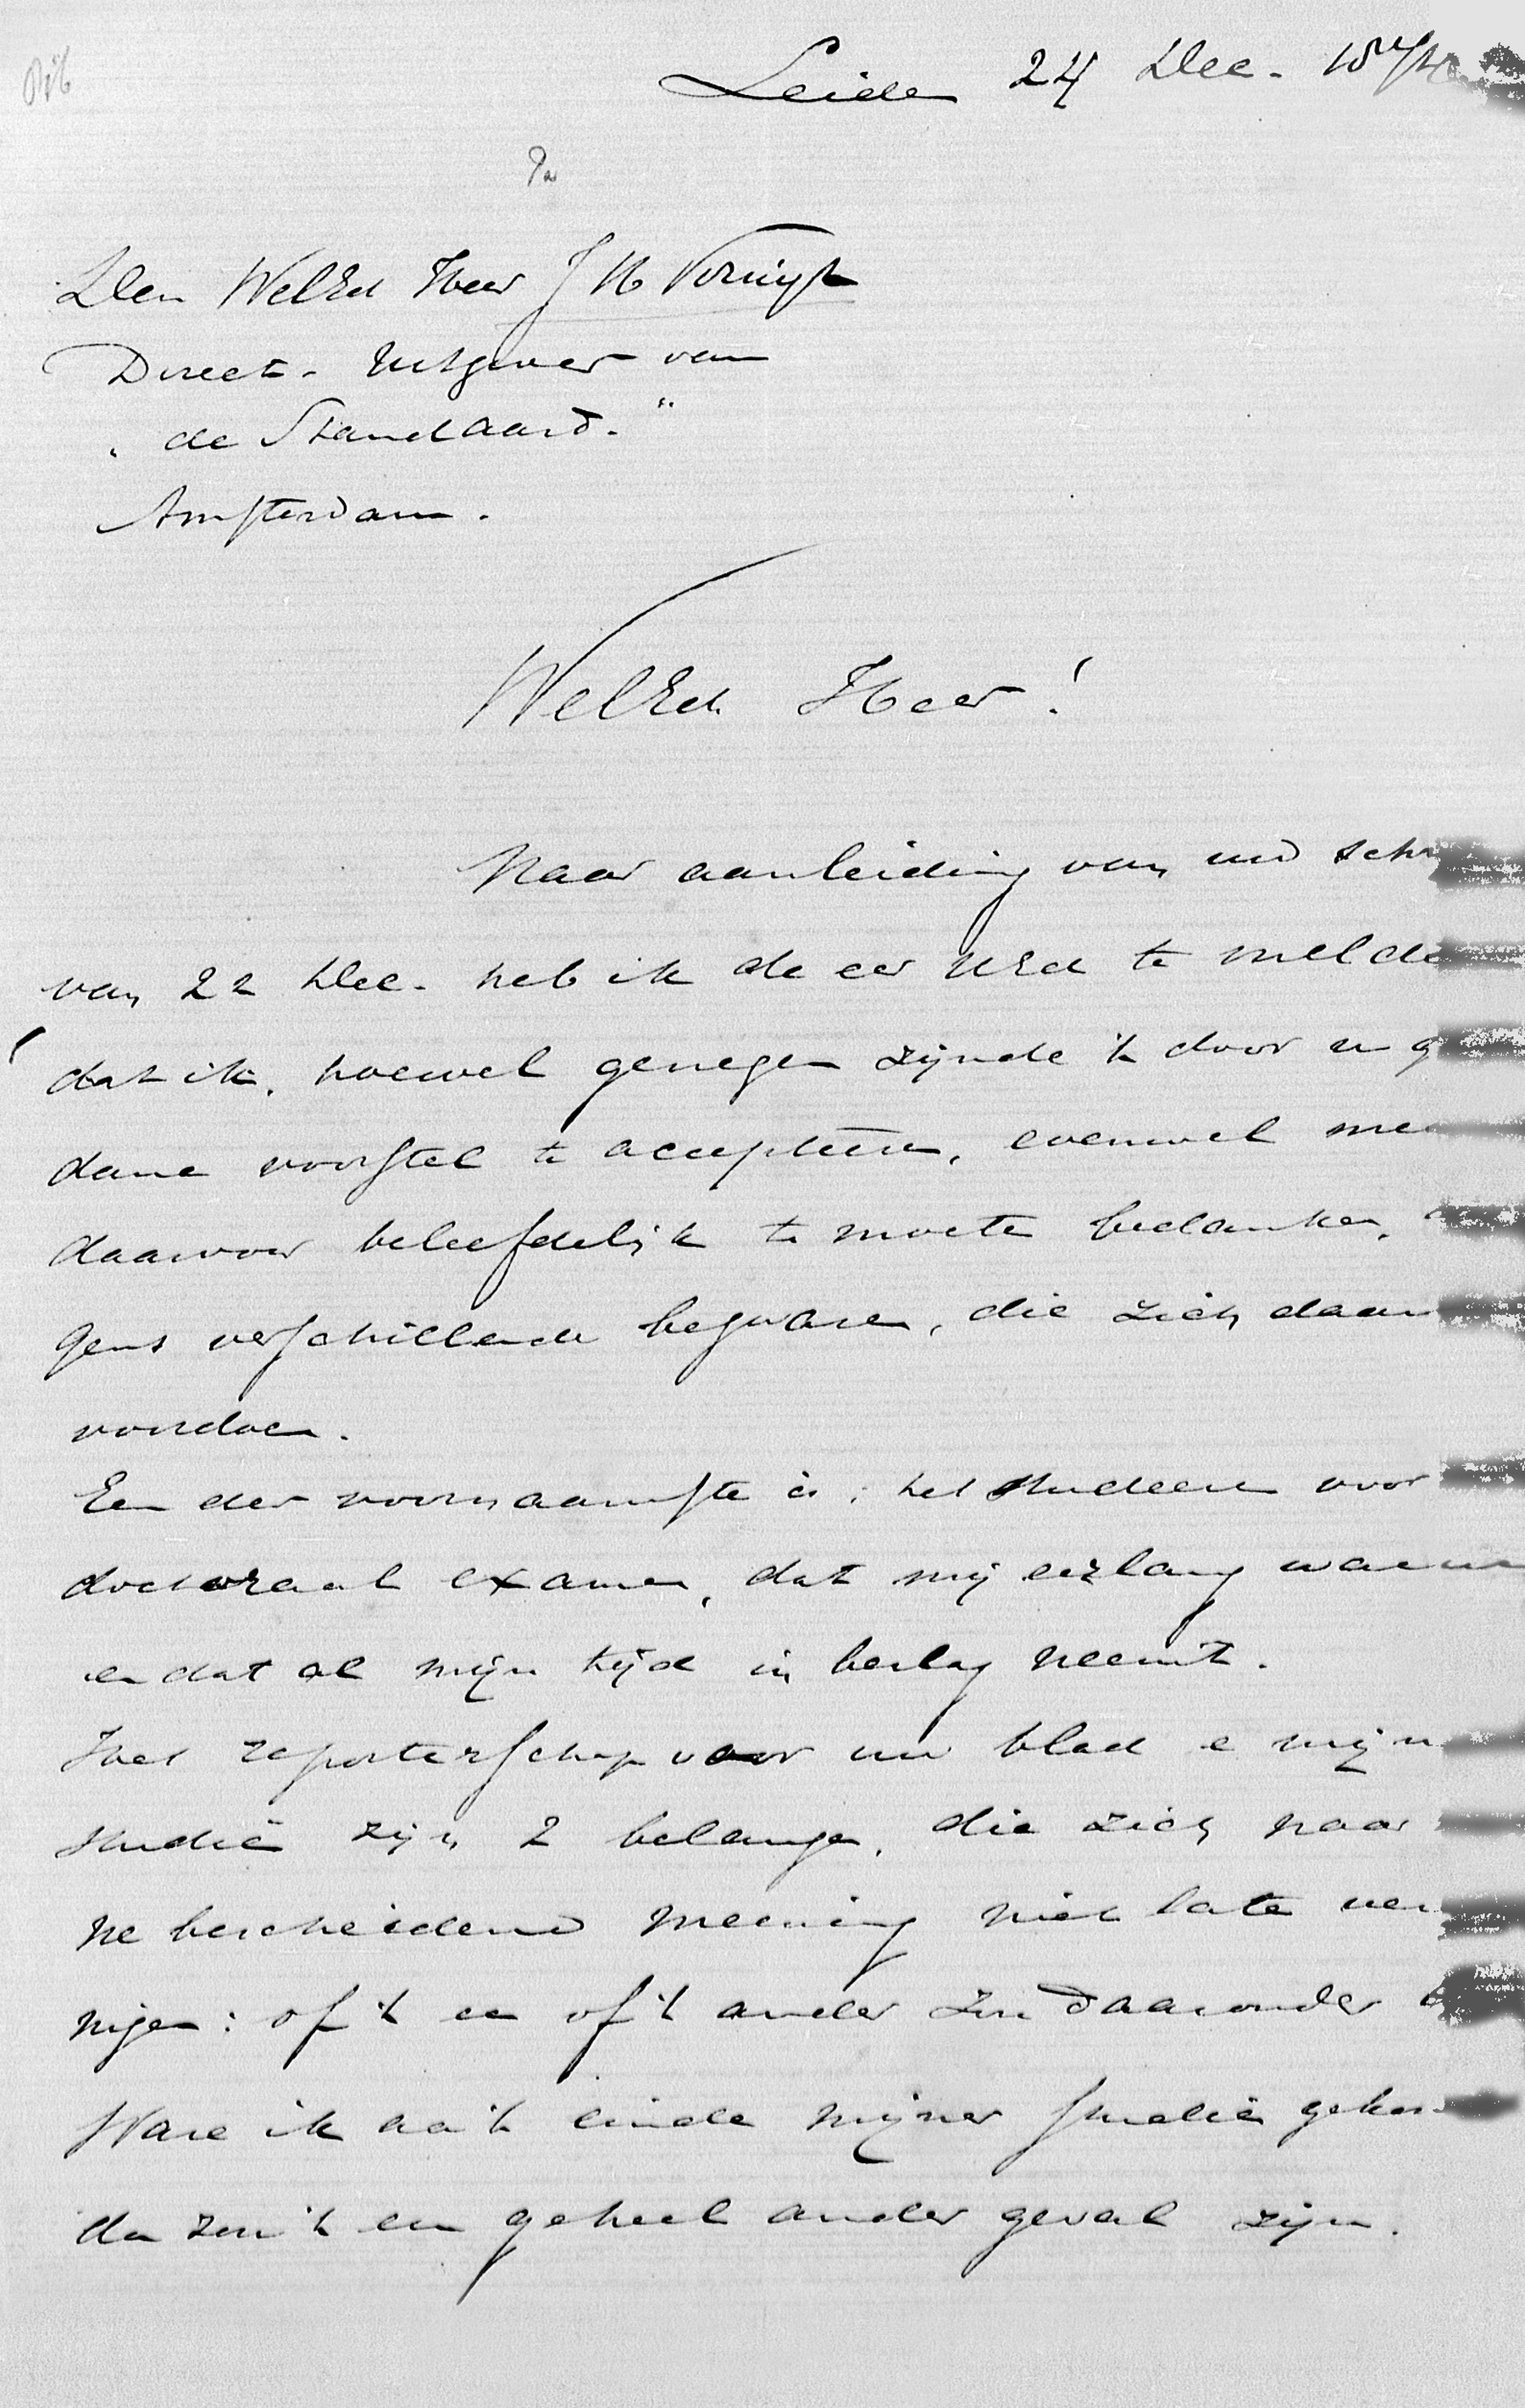 Leiden 24 Dec.
Den WelEd Heer J H Kruyt
Direct. Uitgever van
„de Standaard."
Amsterdam.
WelEd. Heer!
Naar aanleiding van uw schr
van 22 Dec. heb ik de eer UEd te melde
dat ik, hoewel genegen zijnde 't door u g
dane voorstel te accepteeren, evenwel mee
daarvoor beleefdelijk te moeten bedanken,
gens verschillende bezwaren, die zich daar
voordoen.
Een der voornaamste is: het studeeren voor
doctoraal examen, dat mij eerlang
en dat al mijn tijd in beslag neemt.
Het reporterschap voor uw blad en mijn
studiën zijn 2 belangen, die zich naar
ne bescheidene meening niet laten ver
nigen: of 't een of 't ander zou daaronder
Ware ik aan 't einde mijner studiën geko
dan zou 't een geheel ander geval zijn.